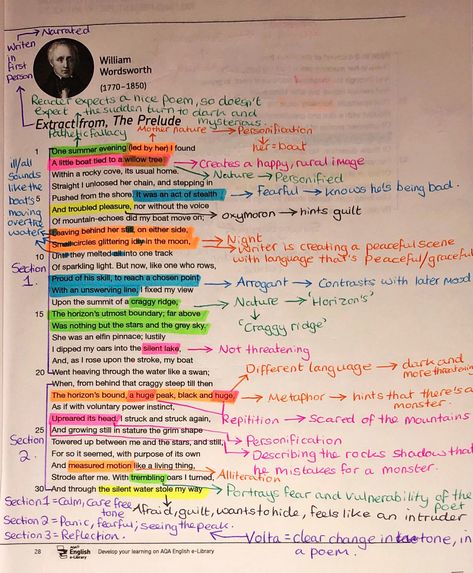 Narrated
Writen
in
first
person
William
Wordsworth
(1770–1850)
Reader expects a nice poem, so doesn't
expect the sudden turn to dark and
mysterious.
Extract from, The Prelude
Pathetic fallacy
Mother nature → Personification
her = boat
1 One summer evening (led by her) I found
A little boat tied to a willow tree
Creates a happy/rural image
Within a rocky cove, its usual home.
Nature → Personified
Straight I unloosed her chain, and stepping in
5 Pushed from the shore. It was an act of stealth
Fearful → knows he's being bad.
And troubled pleasure, nor without the voice
oxymoron → hints guilt
Of mountain-echoes did my boat move on;
ill/all
sounds
like the
boat's
moving
over the
water
Leaving behind her still, on either side,
Night
Small circles glittering idly in the moon,
Writer is creating a peaceful scene
with language that's peaceful/graceful
10 Until they melted all into one track
Of sparkling light. But now, like one who rows,
Section
1.
Proud of his skill, to reach a chosen point
Arrogant → Contrasts with later mood
With an unswerving line, I fixed my view
Upon the summit of a craggy ridge,
Nature → 'Horizon's'
'Craggy ridge'
15 The horizon's utmost boundary; far above
Was nothing but the stars and the grey sky.
She was an elfin pinnace; lustily
I dipped my oars into the silent lake,
Not threatening
And, as I rose upon the stroke, my boat
20 Went heaving through the water like a swan;
Different language → dark and
more threatening
When, from behind that craggy steep till then
The horizon's bound, a huge peak, black and huge,
Metaphor → hints that there's a
monster.
As if with voluntary power instinct,
Repitition → Scared of the mountains
Upreared its head. I struck and struck again,
25 And growing still in stature the grim shape
Personification
Section
2.
Towered up between me and the stars, and still,
Describing the rocks shadow that
he mistakes for a monster.
For so it seemed, with purpose of its own
And measured motion like a living thing,
Alliteration
Strode after me. With trembling oars I turned,
30 And through the silent water stole my way
Portrays fear and vulnerability of the
poet
Section 1 = Calm, care free
tone
Afraid, guilt, wants to hide, feels like an intruder
Section 2 = Panic, fearful, seeing the peak.
Section 3 = Reflection.
Volta = clear change in tone, in
a poem.
28
AQA
English
e-Library
Develop your learning on AQA English e-Library